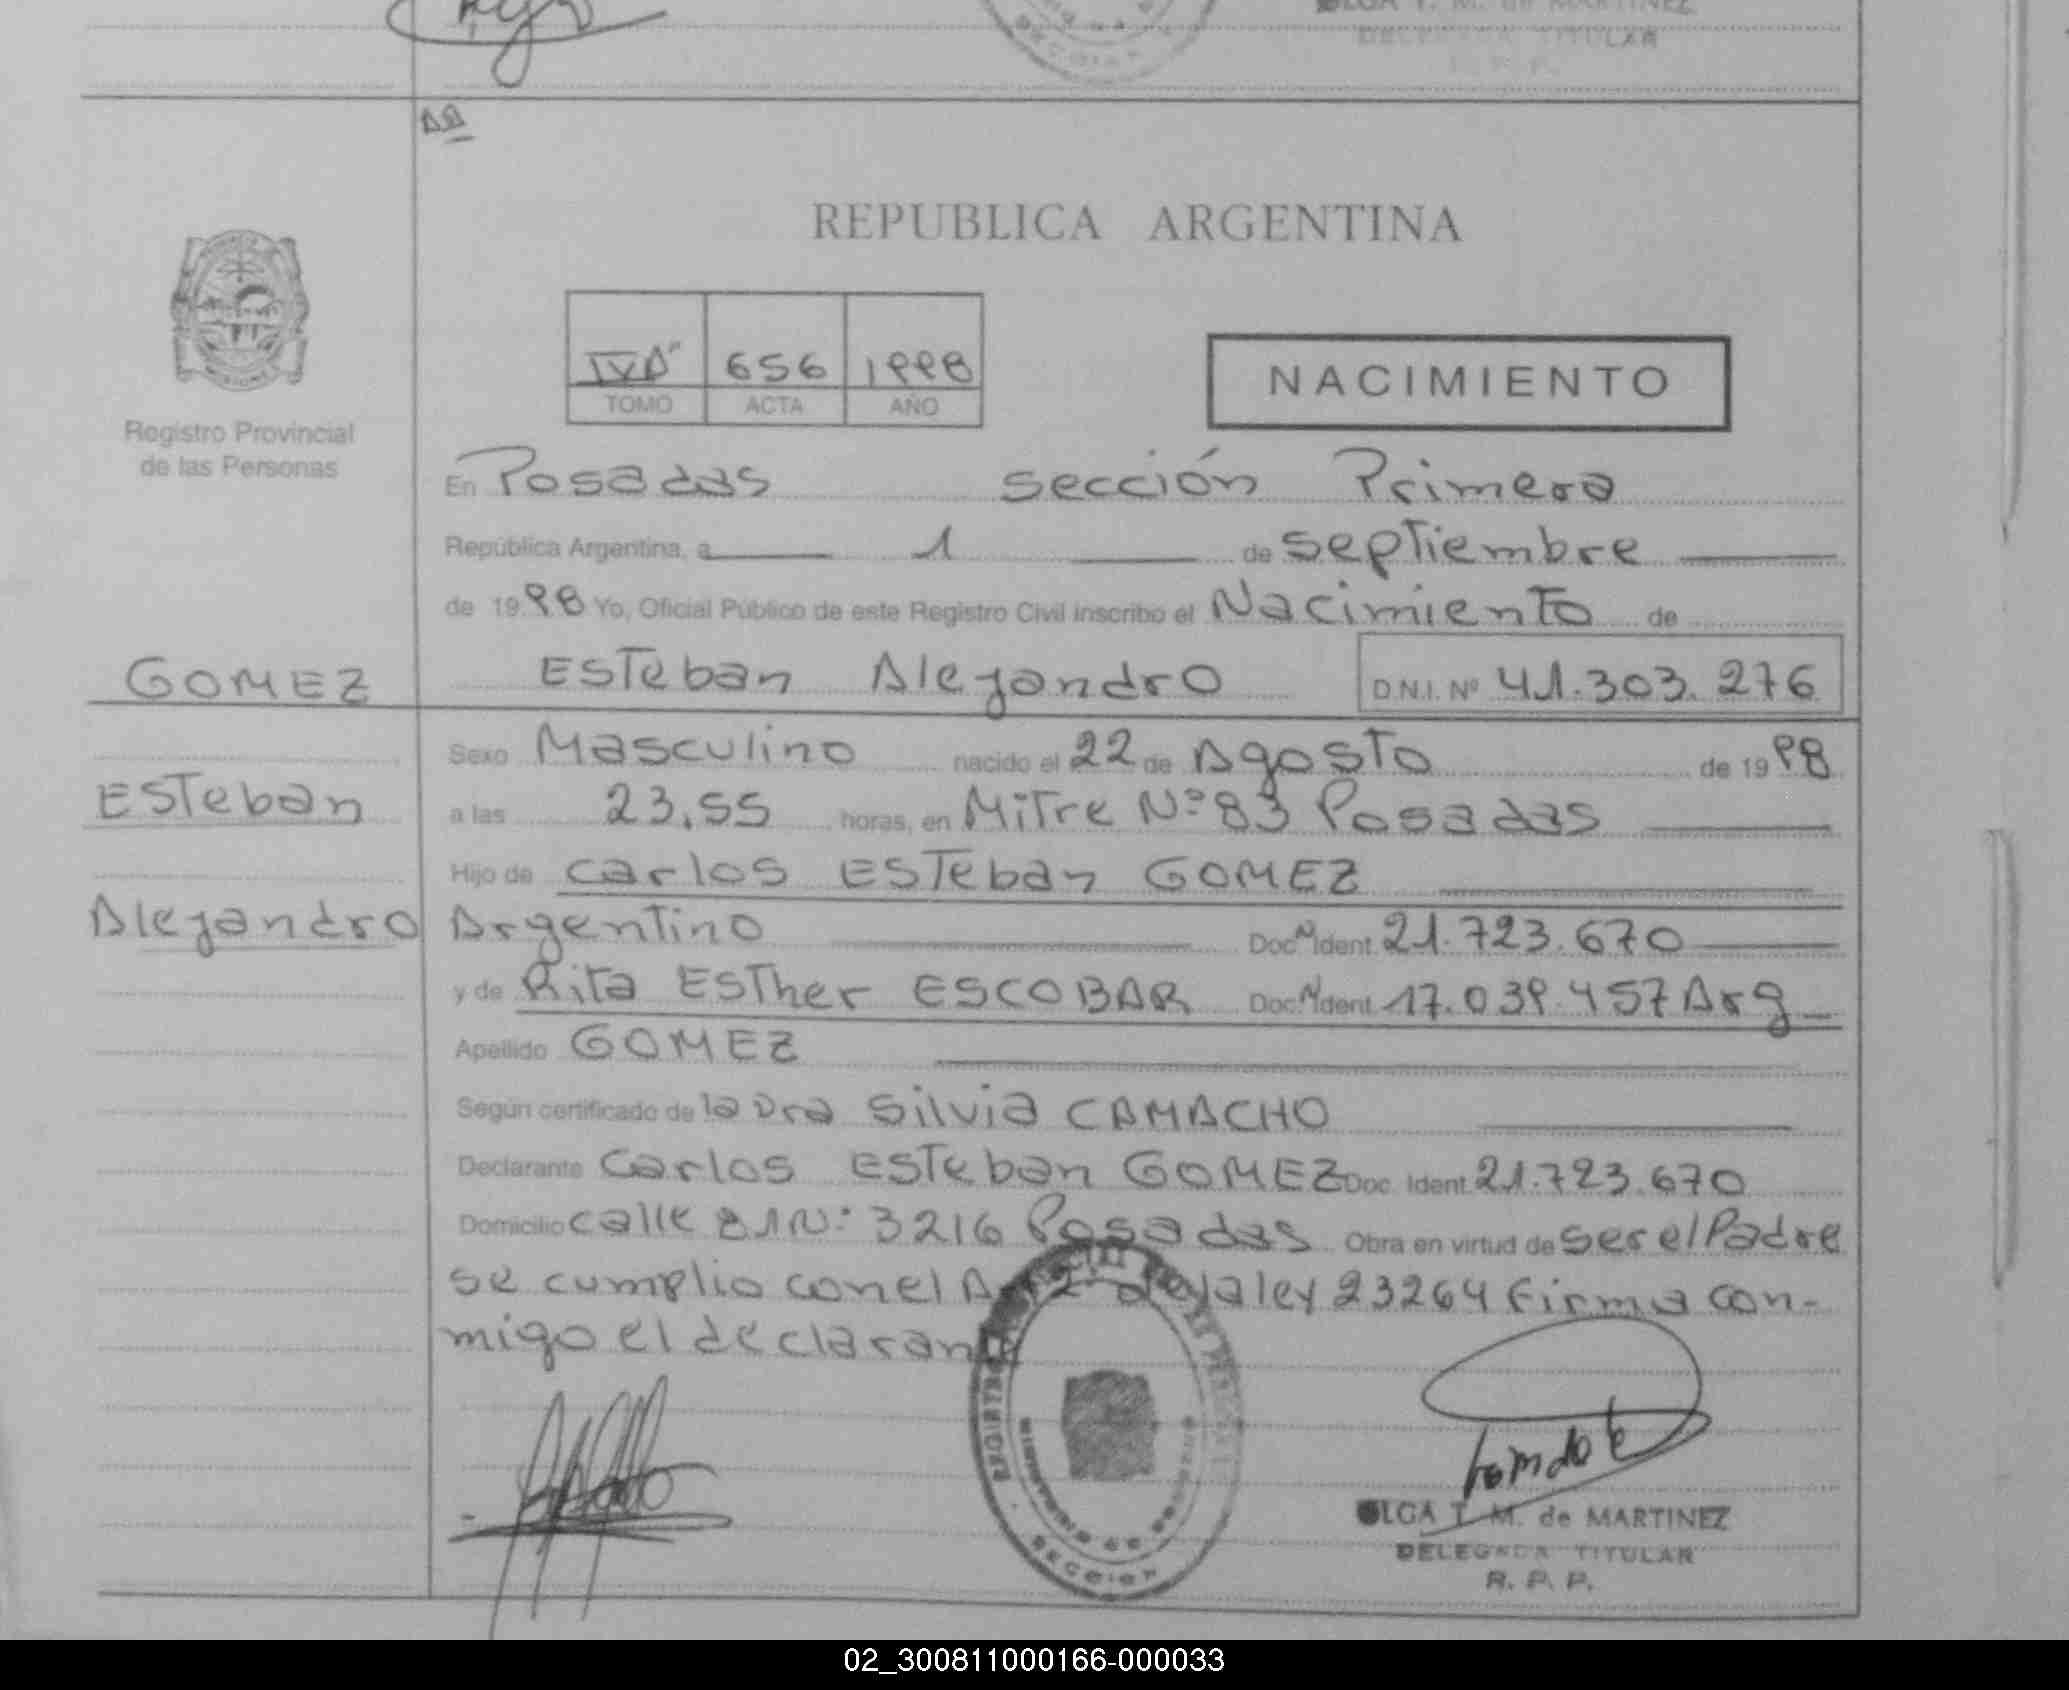 OLGA T. M. de MARTINEZ
DELEGADA TITULAR
R. P. P.
REPUBLICA ARGENTINA
IV 656 1998
TOMO ACTA AÑO
NACIMIENTO
Registro Provincial
de las Personas
En Posadas sección Primera
República Argentina, a 1 de septiembre
de 1998 Yo, Oficial Público de este Registro Civil inscribo el Nacimiento de
GOMEZ Esteban Alejandro D.N.I. Nº 41.303.276
Sexo Masculino nacido el 22 de Agosto de 1998
Esteban
a las 23,55 horas, en Mitre Nº 83 Posadas
Hijo de Carlos Esteban GOMEZ
Alejandro
Argentino Doc. Ident. 21.723.670
y de Rita Esther ESCOBAR Doc. Ident. 17.039.457 Arg
Apellido GOMEZ
Según certificado de la Dra Silvia CAMACHO
Declarante Carlos Esteban GOMEZ Doc. Ident. 21.723.670
Domicilio calle 81 Nº 3216 Posadas Obra en virtud de ser el Padre
se cumplio con el de la ley 23264 firma con-
migo el
SECCION
OLGA T. M. de MARTINEZ
DELEGADA TITULAR
R. P. P.
02_300811000166-000033